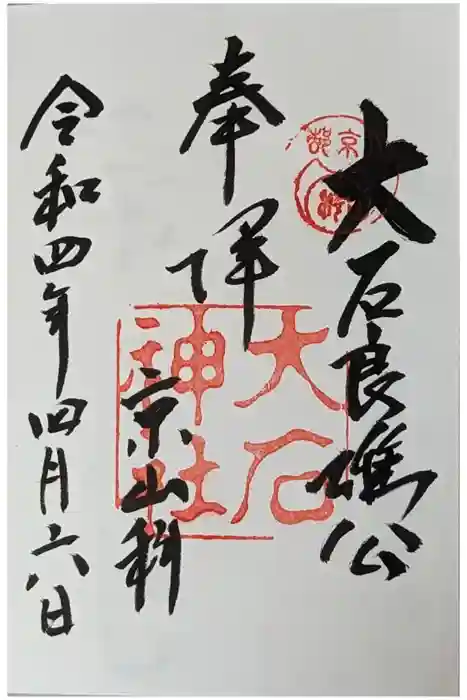 大石良雄公
奉拝
京山科
令和四年四月六日
大石
神社
京都